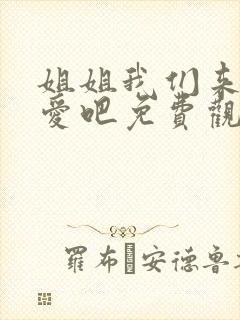 姐姐我们来
爱吧免費觀
羅布·安德魯